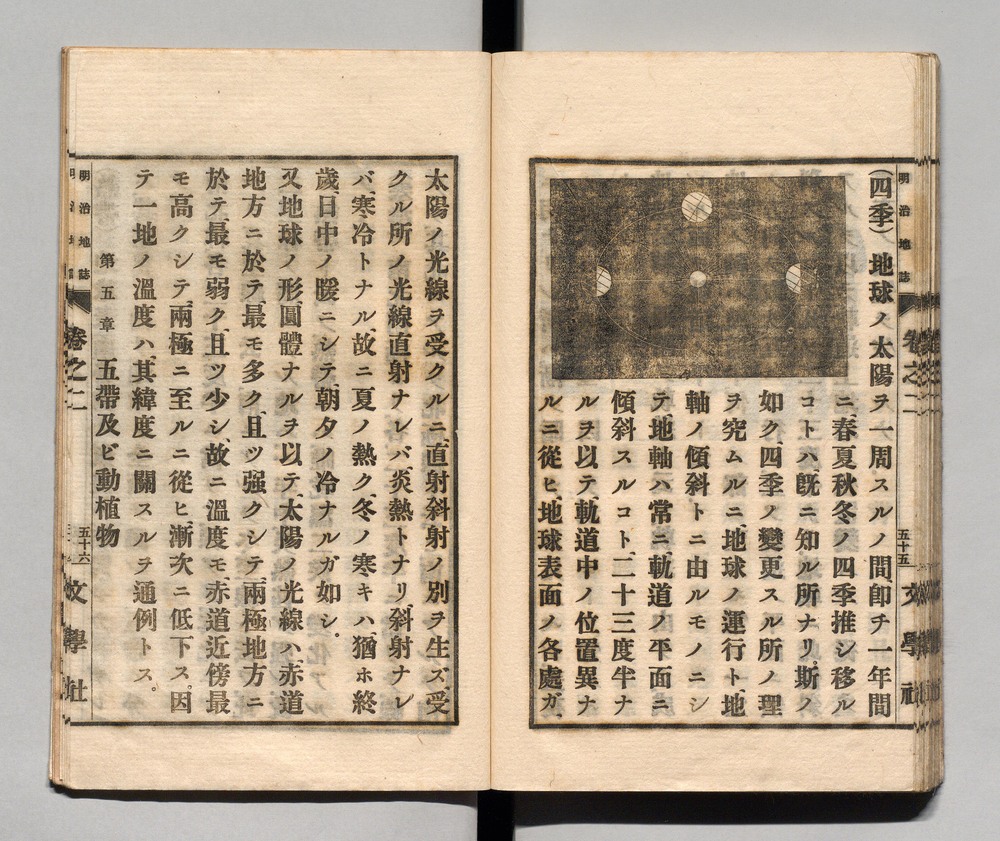 明治地誌
卷之二
五十五
文學社
(四季)地球ノ太陽ヲ一周スルノ間、卽チ一年間
ニ、春夏秋冬ノ四季推シ移ル
コトハ、旣ニ知ル所ナリ。斯ノ
如ク、四季ノ變更スル所ノ理
ヲ究ムルニ、地球ノ運行ト、地
軸ノ傾斜トニ由ルモノニシ
テ、地軸ハ常ニ軌道ノ平面ニ
傾斜スルコト、二十三度半ナ
ルヲ以テ、軌道中ノ位置異ナ
ルニ從ヒ、地球表面ノ各處ガ、
太陽ノ光線ヲ受クルニ、直射斜射ノ別ヲ生ズ、受
クル所ノ光線直射ナレバ、炎熱トナリ、斜射ナレ
バ、寒冷トナル、故ニ夏ノ熱ク、冬ノ寒キハ、猶ホ終
歲、日中ノ暖ニシテ、朝夕ノ冷ナルガ如シ。
又地球ノ形、圓體ナルヲ以テ、太陽ノ光線ハ、赤道
地方ニ於テ、最モ多ク、且ツ强クシテ、兩極地方ニ
於テ、最モ弱ク、且ツ少シ、故ニ溫度モ、赤道近傍最
モ高クシテ、兩極ニ至ルニ從ヒ、漸次ニ低下ス。因
テ一地ノ溫度ハ、其緯度ニ關スルヲ通例トス。
第五章 五帶及ビ動植物
明治地誌
卷之二
五十六
文學社